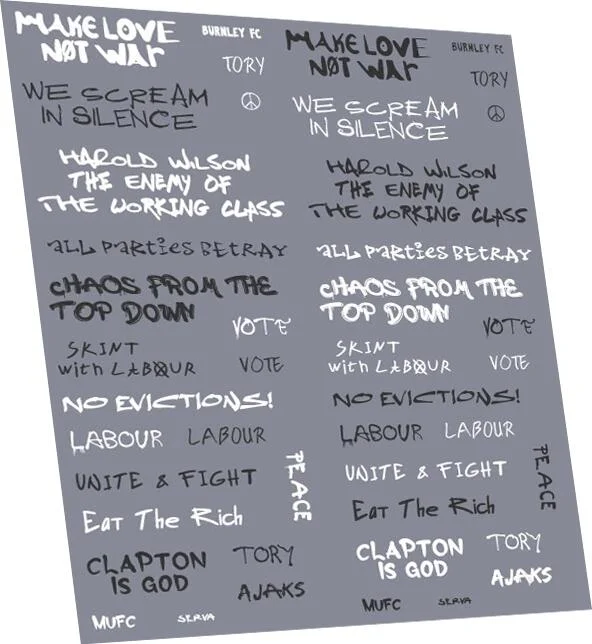 MAKE LOVE
NØT WAr
BURNLEY FC
TORY
MAKE LOVE
NØT WAr
BURNLEY FC
TORY
WE SCREAM
IN SILENCE
WE SCREAM
IN SILENCE
HAROLD WiLSON
THE ENEMY OF
THE WORKING CLASS
HAROLD WiLSON
THE ENEMY OF
THE WORKING CLASS
aLL ParTies BETRAY
aLL ParTies BETRAY
cHAOS FROM THE
TOP DOWN
VOTE
cHAOS FROM THE
TOP DOWN
VOTE
SKINT
with LABOUR
VOTE
SKINT
with LABOUR
VOTE
NO EVICTIONS!
NO EVICTIONS!
LABOUR LABOUR
LABOUR LABOUR
PEACE
PEACE
UNITE & FIGHT
UNITE & FIGHT
EaT The Rich
EaT The Rich
CLAPTON
IS GOD
TORY
AJAKS
CLAPTON
IS GOD
TORY
AJAKS
MUFC
SERVA
MUFC
SERVA